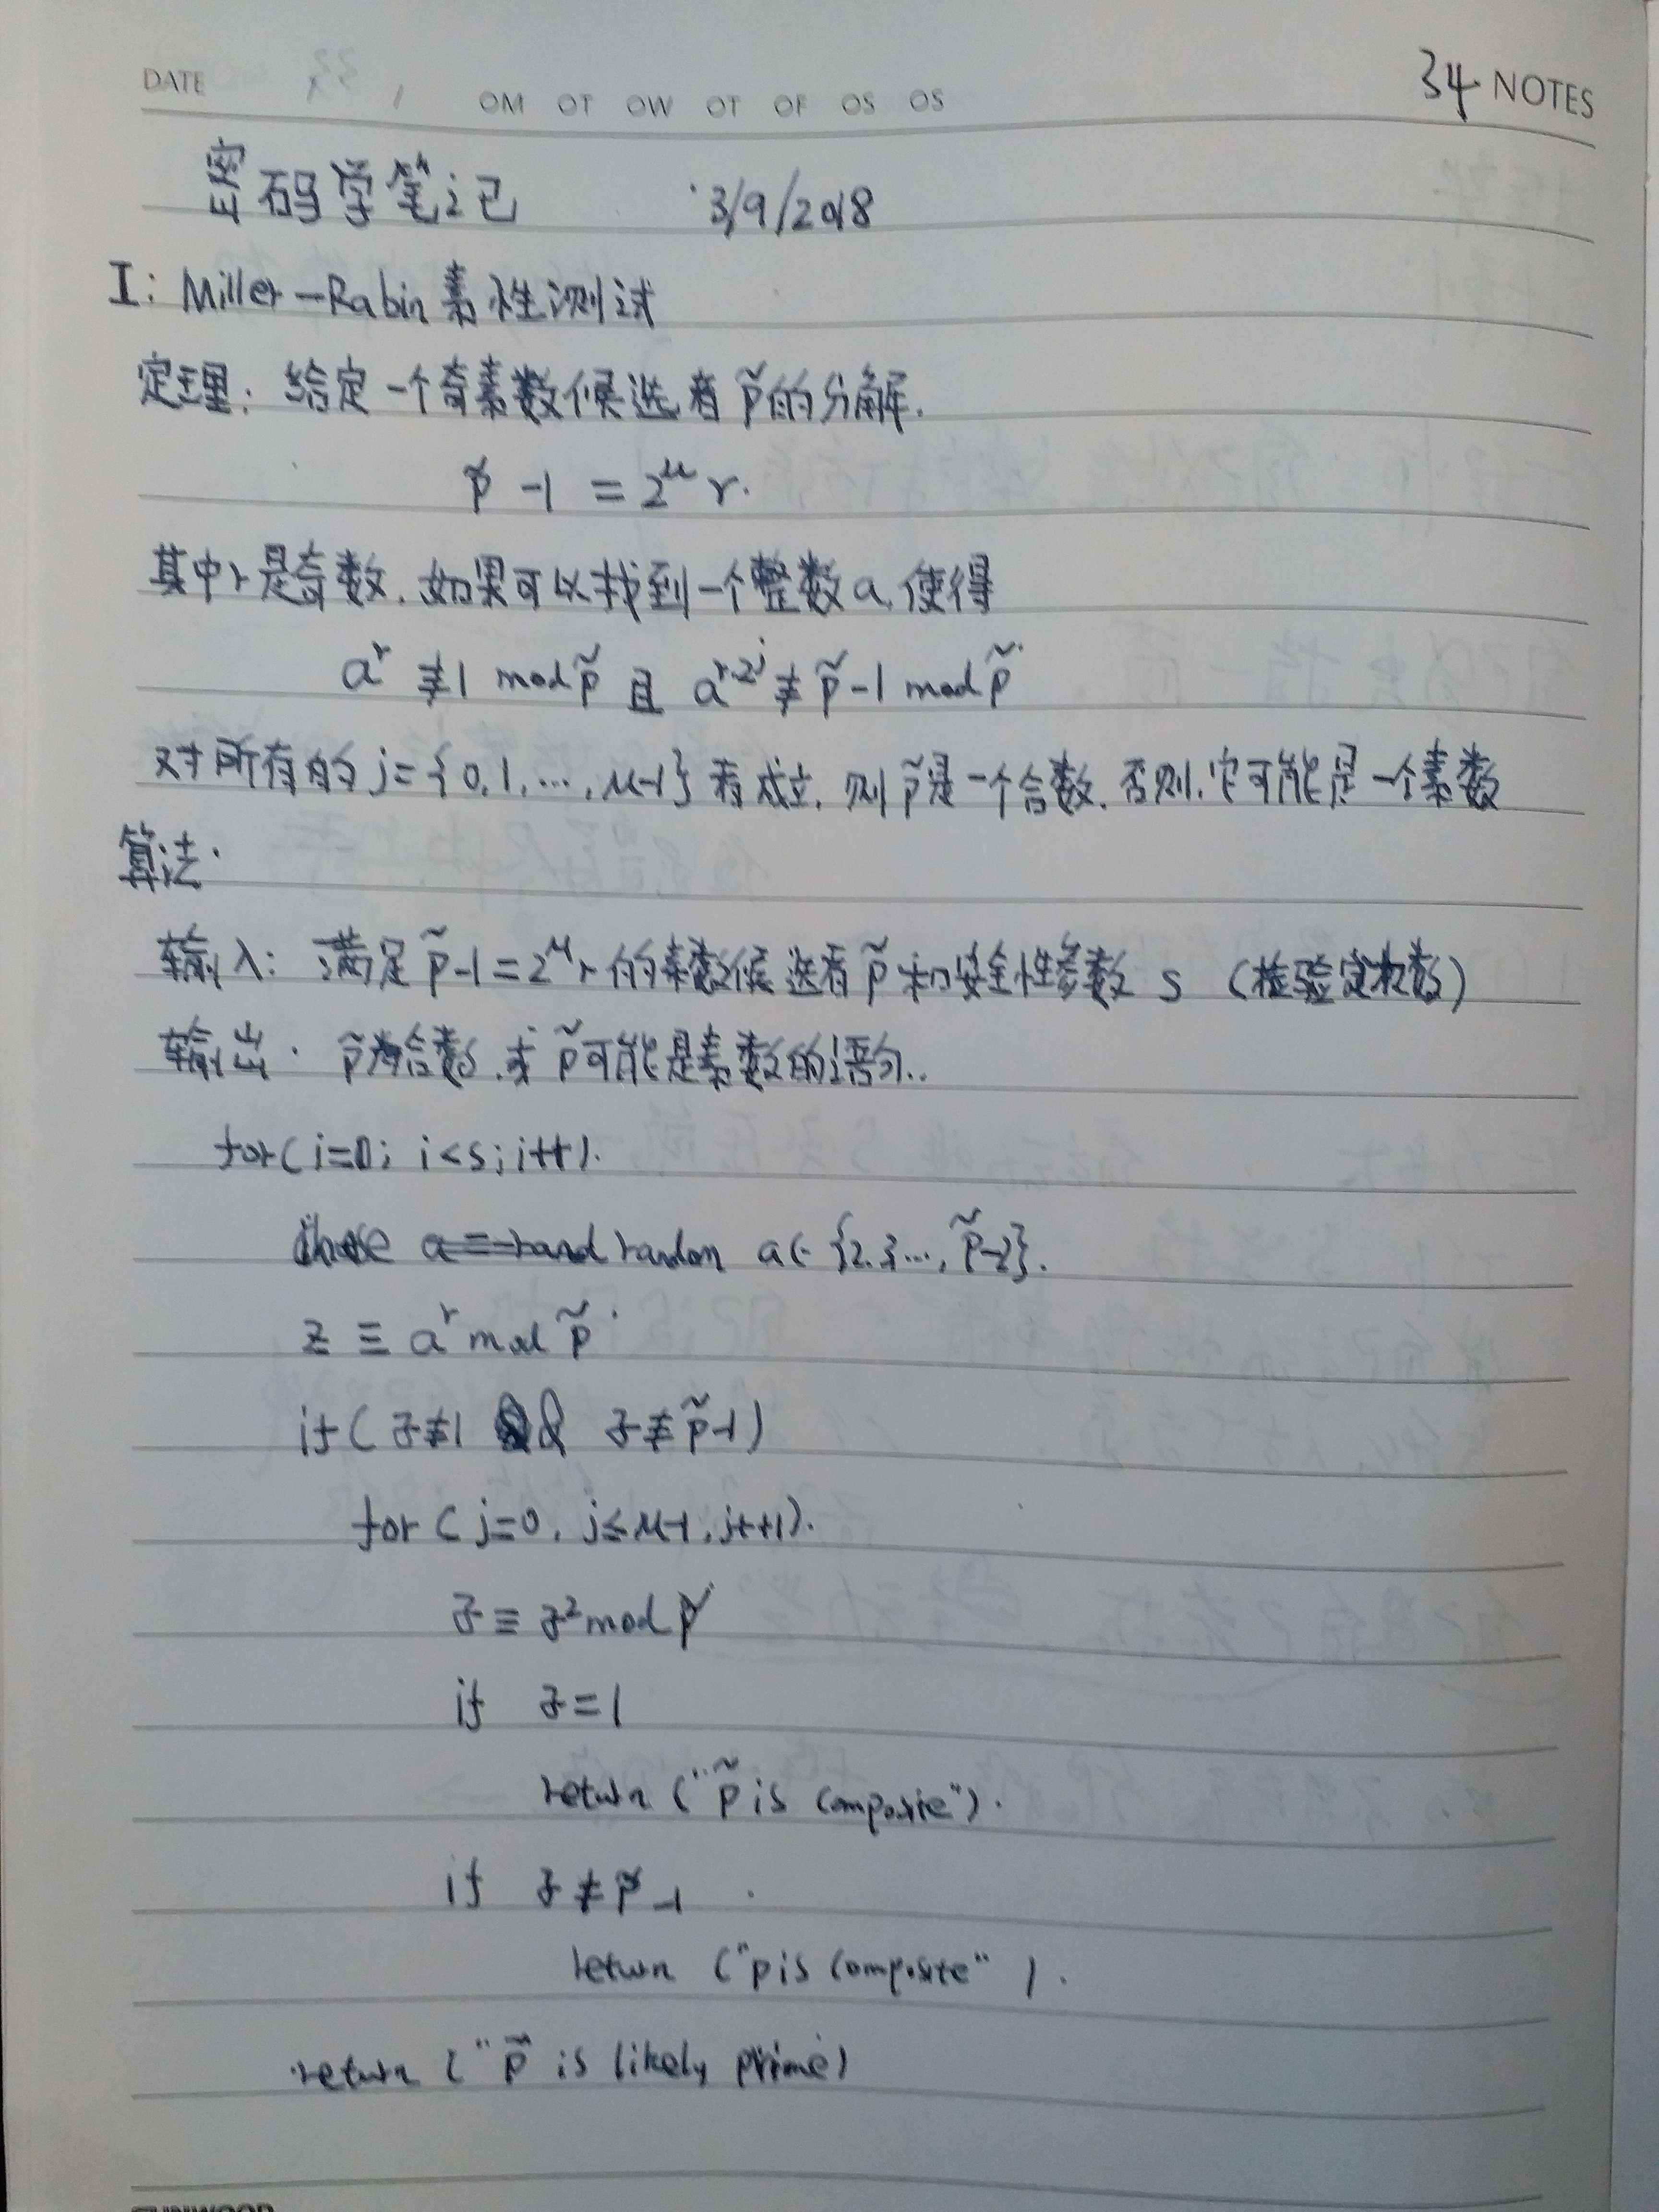 DATE OM OT OW OT OF OS OS 34 NOTES
密码学笔记 3/9/2018
I: Miller-Rabin 素性测试
定理: 给定一个奇素数候选者 p̃ 的分解.
p̃ -1 = 2^u r.
其中r是奇数. 如果可以找到一个整数a, 使得
a^r ≢ 1 mod p̃ 且 a^{r·2^j} ≢ p̃-1 mod p̃
对所有的 j={0,1,...,u-1} 都成立, 则 p̃是一个合数. 否则, 它可能是一个素数
算法.
输入: 满足 p̃-1=2^u r 的素数候选者 p̃ 和安全性参数 s (检验次数)
输出: p̃为合数, 或 p̃可能是素数的语句..
for(i=0; i<s; i++).
random a∈ {2,3..., p̃-2}.
z ≡ a^r mod p̃
if( z≢1 && z≢p̃-1)
for (j=0, j≤u-1, j++).
z ≡ z² mod p̃
if z=1
return ("p̃ is composite").
if z≠p̃-1
return ("p is composite").
return ("p̃ is likely prime)